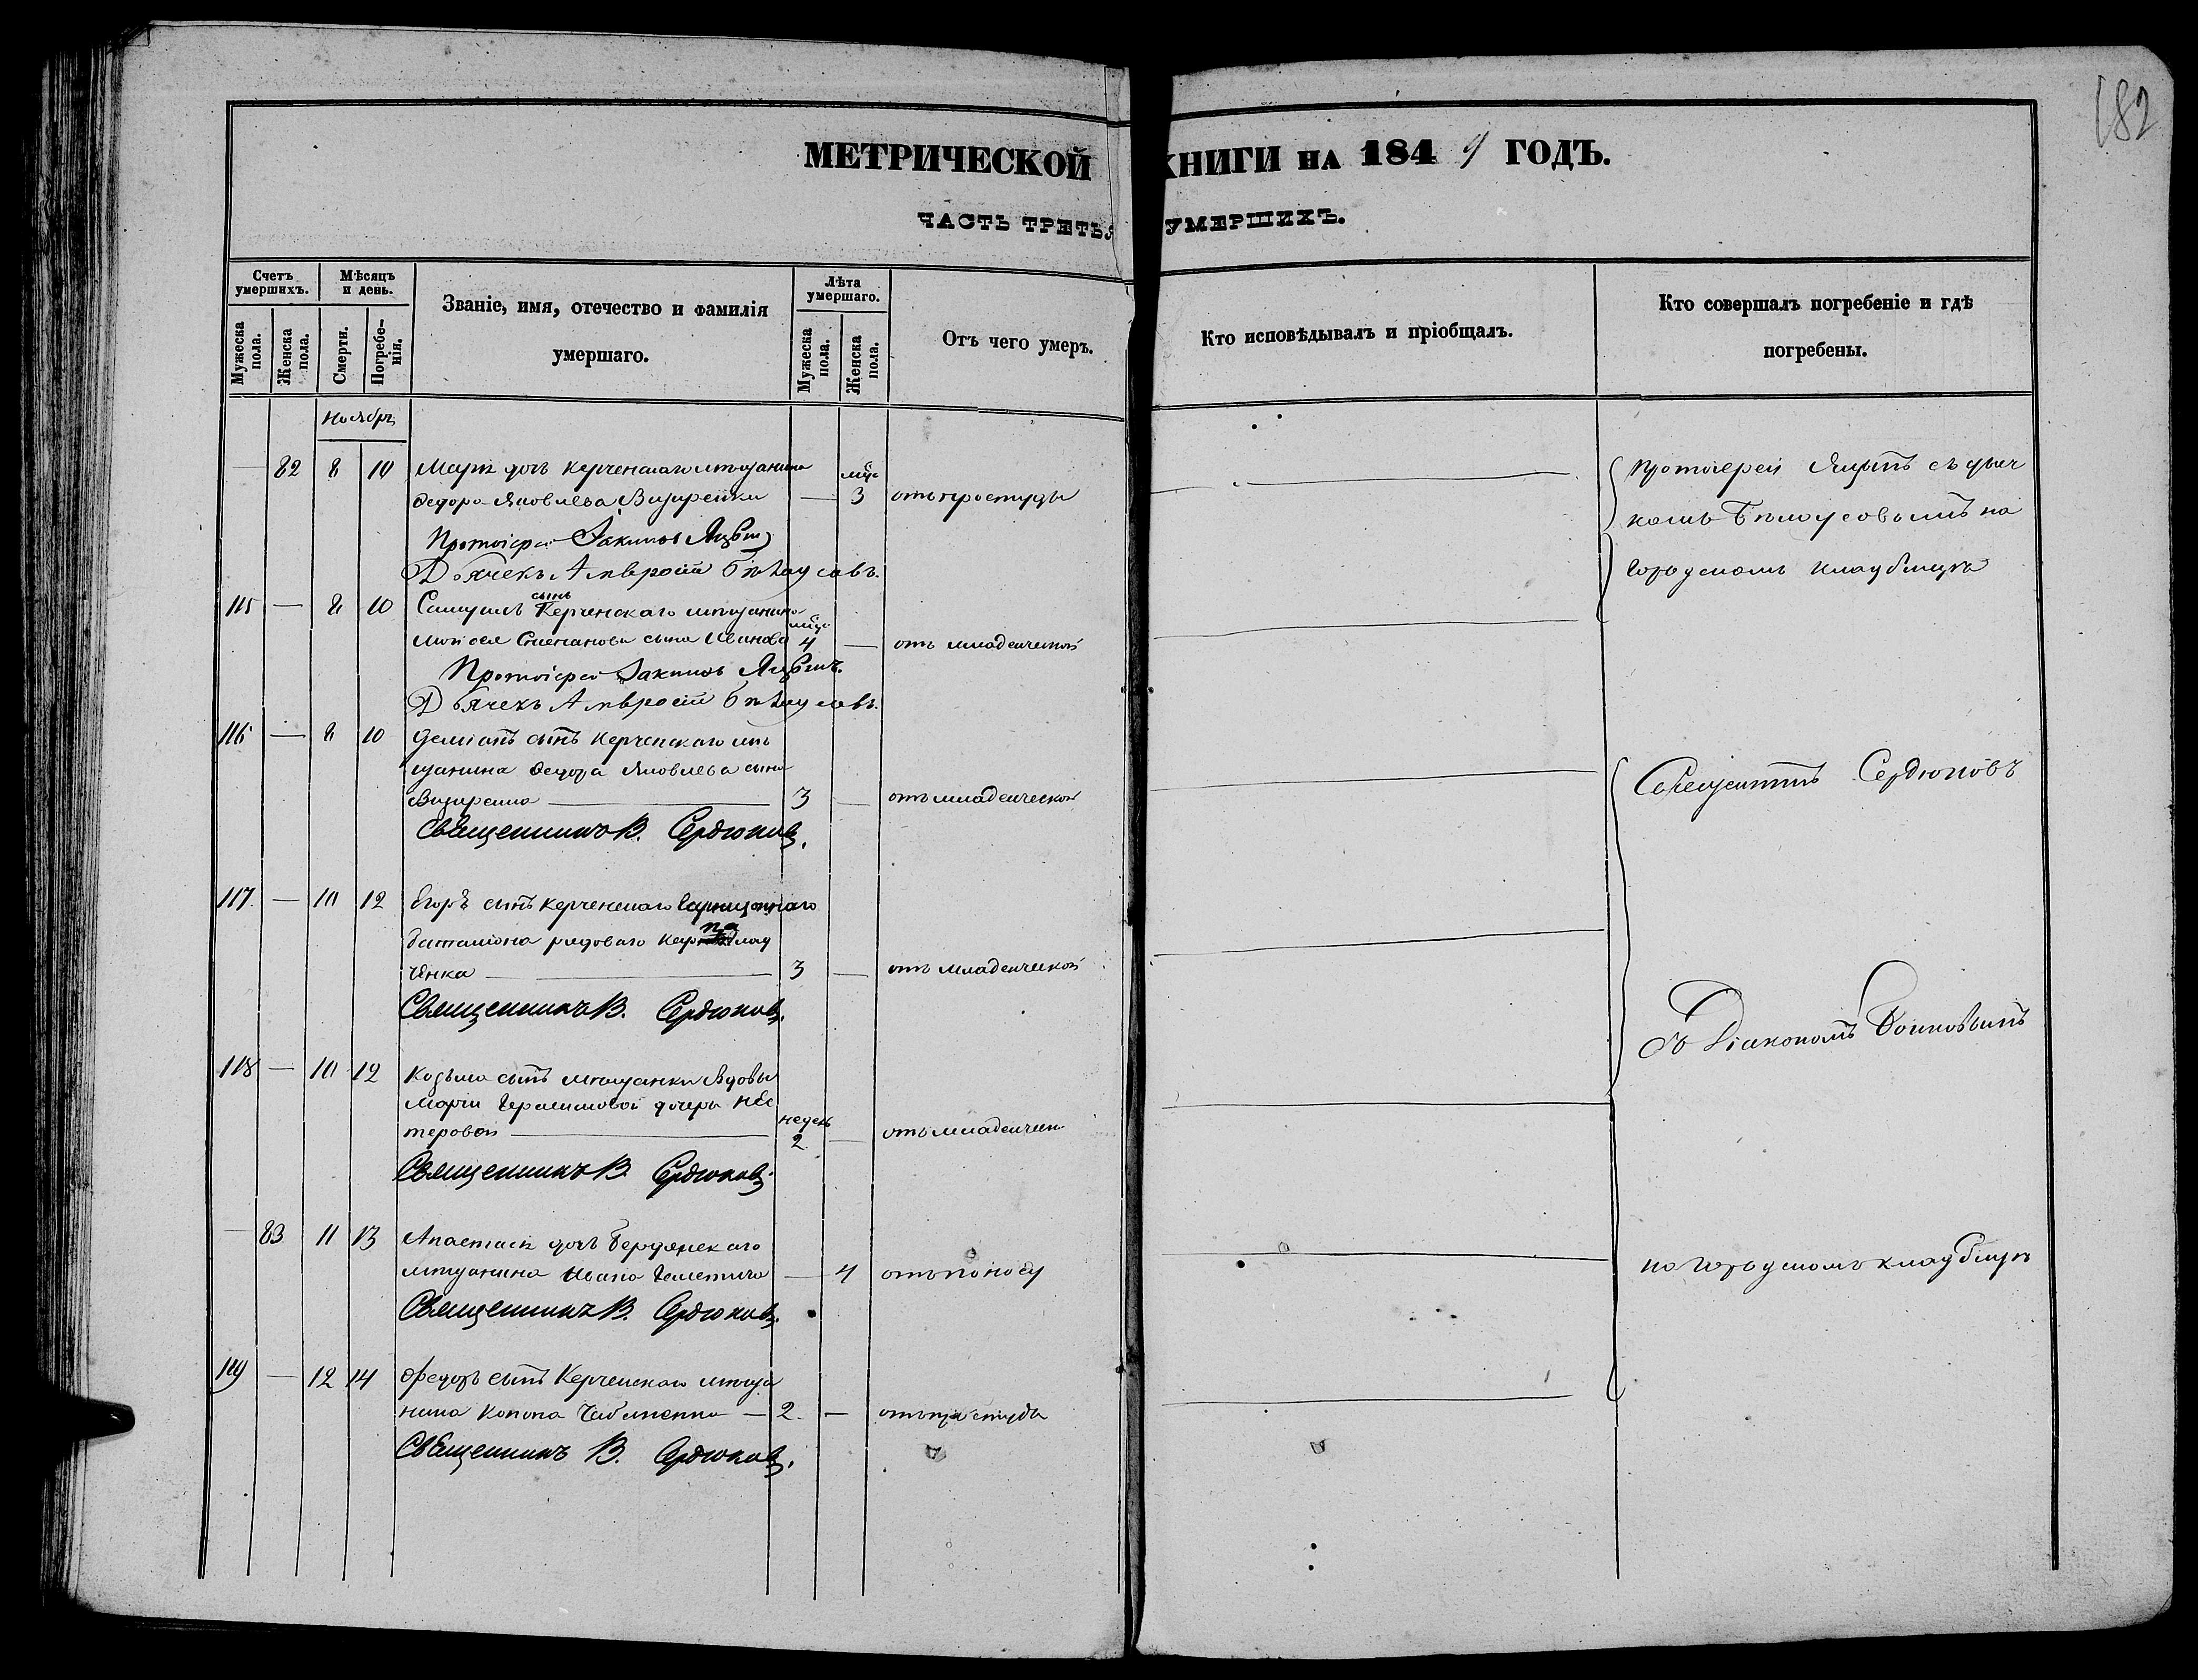 182
МЕТРИЧЕСКОЙ КНИГИ НА 1849 ГОДЪ.
ЧАСТЬ ТРЕТЬЯ УМЕРШИХЪ.
Счетъ умершихъ.
Мужеска пола.
Женска пола.
Мѣсяцъ и день.
Смерти.
Погребенія.
Званіе, имя, отечество и фамилія
умершаго.
Лѣта умершаго.
Мужеска пола.
Женска пола.
Отъ чего умеръ.
Кто исповѣдывалъ и пріобщалъ.
Кто совершалъ погребеніе и гдѣ
погребены.
Ноябрь
82 8 10 дочь Керченскаго мѣщанина
Федора Яковлева — 3 отъ простуды
Протоіерей
Дьячекъ Амвросій Бѣлоусовъ.
115 — 8 10 Самуилъ сынъ Керченскаго мѣщанина
Моисея Степанова сына Иванова 4 — отъ младенческой
Протоіерей
Дьячекъ Амвросій Бѣлоусовъ.
116 — 8 10 Деміанъ сынъ Керченскаго мѣ
щанина Федора Яковлева сына
3 — отъ младенческой
Священникъ В. Сердюковъ.
117 — 10 12 Егоръ сынъ Керченскаго Гарнизоннаго
баталіона рядоваго
ченка — 3 — отъ младенческой
Священникъ В. Сердюковъ.
118 — 10 12 Козьма сынъ мѣщанки вдовы
Маріи Герасимовой дочери Нес
теровой — недель 2 — отъ младенчес
Священникъ В. Сердюковъ.
83 11 13 Анастасія дочь Бердянскаго
мѣщанина Ивана — 4 отъ поносу
Священникъ В. Сердюковъ.
119 — 12 14 Федоръ сынъ Керченскаго мѣща
нина Конона — 2 — отъ простуды
Священникъ В. Сердюковъ.
Протоіерей съ дьяч
комъ Бѣлоусовымъ на
Городскомъ кладбищѣ
Священникъ Сердюковъ
съ Діакономъ
на городскомъ кладбищѣ